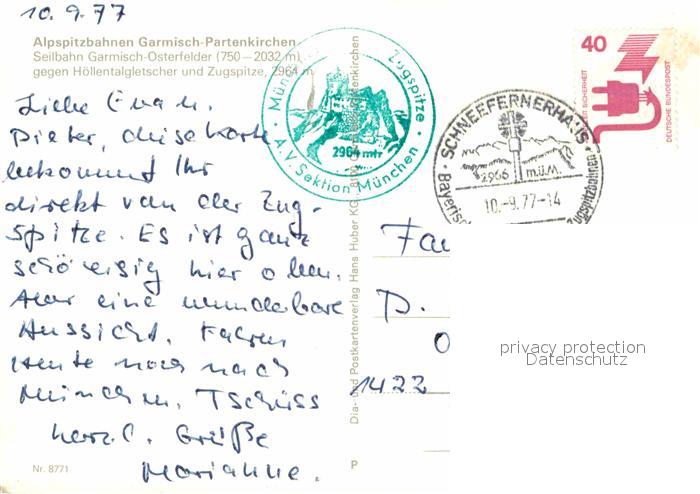 10.9.77
Alpspitzbahnen Garmisch-Partenkirchen
Seilbahn Garmisch-Osterfelder (750 – 2032 m)
gegen Höllentalgletscher und Zugspitze, 2964 m
Liebe Eva u.
Dieter, diese Karte
bekommt Ihr
direkt von der Zug-
spitze. Es ist ganz
schön eisig hier oben.
Aber eine wunderbare
Aussicht. Fahren
heute noch nach
München. Tschüss
herzl. Grüße
Marianne.
Nr. 8771
P
Dia- und Postkartenverlag Hans Huber KG
Zugspitze
2964 mtr
A.V. Sektion München
SCHNEEFERNERHAUS
2966 m.ü.M.
10.-9.77-14
Zugspitzbahnen
40
DEUTSCHE BUNDESPOST
Fa
D.
1422
privacy protection
Datenschutz